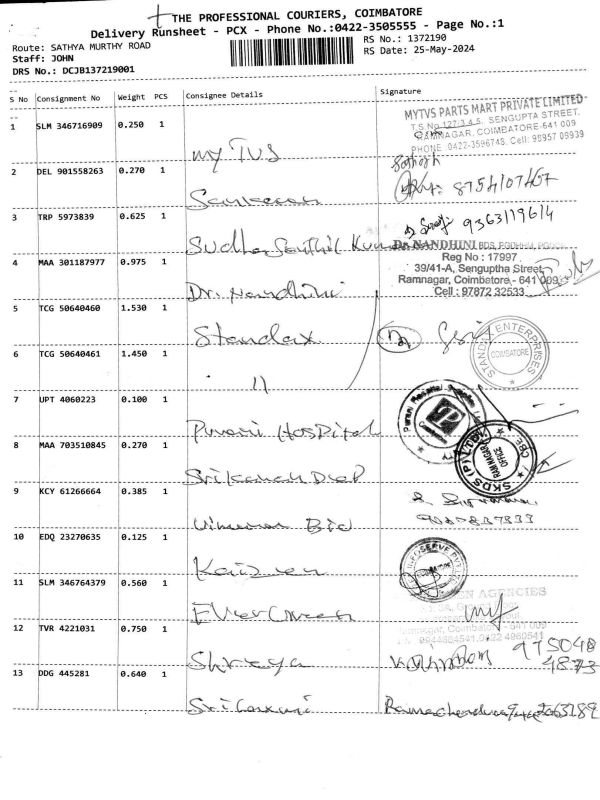 THE PROFESSIONAL COURIERS, COIMBATORE
Delivery Runsheet - PCX - Phone No.:0422-3505555 - Page No.:1
Route: SATHYA MURTHY ROAD
RS No.: 1372190
Staff: JOHN
RS Date: 25-May-2024
DRS No.: DCJB137219001
S No Consignment No Weight PCS Consignee Details Signature
1 SLM 346716909 0.250 1 my TVS
MYTVS PARTS MART PRIVATE LIMITED
T.S.No.127/3,4,5, SENGUPTA STREET,
RAMNAGAR, COIMBATORE-641 009
PHONE 0422-3596748. Cell: 98857 09939
2 DEL 901558263 0.270 1
8754107467
3 TRP 5973839 0.625 1 Sudha Senthil Kumar
9363119614
4 MAA 301187977 0.975 1 Dr. Nandhini
Dr. NANDHINI BDS,
Reg No : 17997
39/41-A, Senguptha Street,
Ramnagar, Coimbatore - 641 009
Cell : 97872 32533
5 TCG 50640460 1.530 1 Standax
STANDAX ENTERPRISES
COIMBATORE
6 TCG 50640461 1.450 1 11
7 UPT 4060223 0.100 1 Puvani Hospital
8 MAA 703510845 0.270 1
SKDS (P) LTD
RAM NAGAR
OFFICE
CBE
9 KCY 61266664 0.385 1
10 EDQ 23270635 0.125 1 Kaizen
INFOSERVE PVT
11 SLM 346764379 0.560 1 Evergreen
AGENCIES
Ramnagar, Coimbatore - 641 009
12 TVR 4221031 0.750 1 Shreya
975048
4873
13 DDG 445281 0.640 1